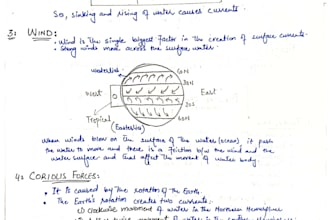 So, sinking and rising of water causes currents.
3: WIND:
• Wind is the single biggest factor in the creation of surface currents.
• Strong winds move across the surface water.
Westerlies
60N
30N
West
East
30S
60S
Tropical
(Easterlies)
When winds blow on the surface of the water (ocean) it push
the water to move and there is a friction b/w the wind and the
water surface and thus affect the movement of water body.
4: CORIOLIS FORCES:
• It is caused by the rotation of the Earth.
• The Earth's rotation creates two currents.
i) Clockwise movement of water in the Northern Hemisphere
movement of water in the